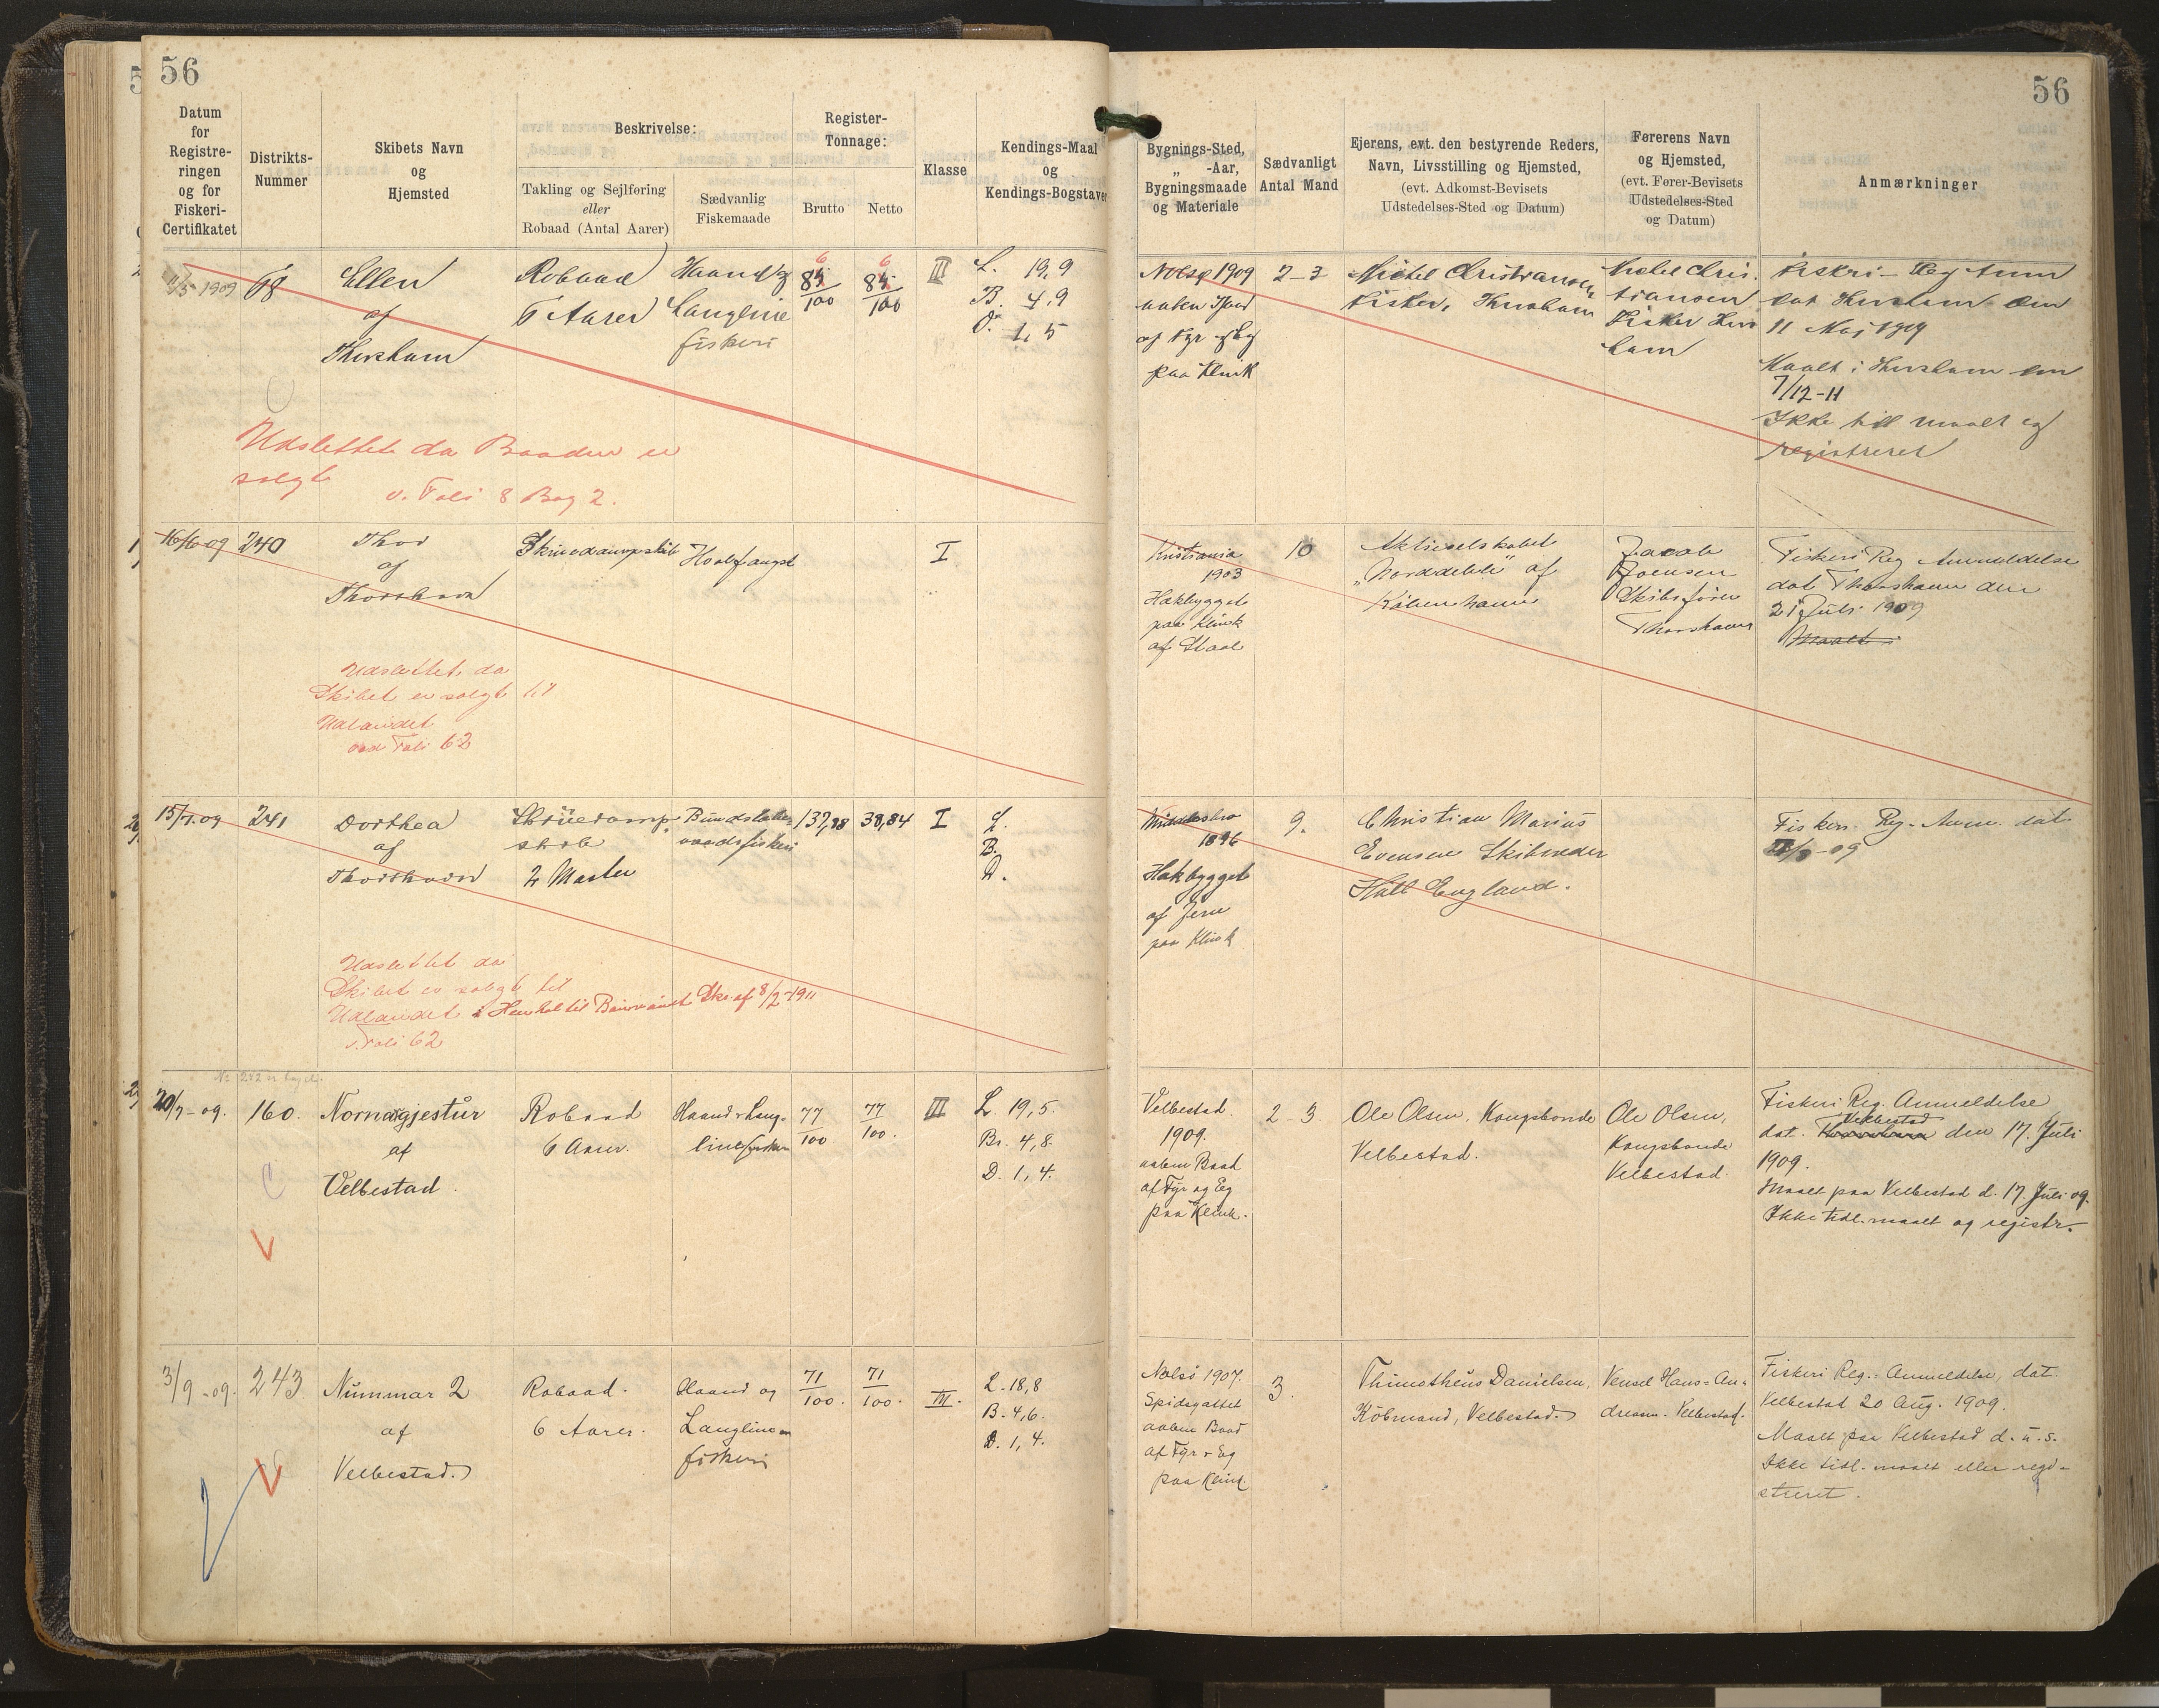 56
56
Datum
for
Registre-
ringen
og for
Fiskeri-
Certifikatet
Distrikts-
Nummer
Skibets Navn
og
Hjemsted
Beskrivelse:
Takling og Sejlføring
eller
Robaad (Antal Aarer)
Sædvanlig
Fiskemaade
Register-
Tonnage:
Brutto
Netto
Klasse
Kendings-Maal
og
Kendings-Bogstaver
Bygnings-Sted,
„ -Aar,
Bygningsmaade
og Materiale
Sædvanligt
Antal Mand
Ejerens, evt. den bestyrende Reders,
Navn, Livsstilling og Hjemsted,
(evt. Adkomst-Bevisets
Udstedelses-Sted og Datum)
Førerens Navn
og Hjemsted,
(evt. Fører-Bevisets
Udstedelses-Sted
og Datum)
Anmærkninger
11/5-1909
68
Ellen
af
Thorshavn
Robaad
6 Aarer
Haand og
Langline
fiskeri
100
100
III
L. 19,9
B. 4,9
D. 1,5
Nolsø 1909
aaben Baad
af Fyr og Eg
paa Klink
2-3
Michel Christiansen
Fisker, Thorshavn
Michel Chris-
tiansen
Fisker Thors
havn
Fiskeri-Reg Anm
dat Thorshavn den
11 Maj 1909
Maalt i Thorshavn den
7/12-11
Ikke till maalt og
registreret
Udslettet da Baaden er
solgt
v. Folio 8 Bog 2.
16/6-09
240
Thor
af
Thorshavn
Skruedampskib
Hvalfangst
I
Kristiania
1903
Hækbygget
paa Klink
af Staal
10
Aktieselskabet
„Norddeble" af
København
Jacob
Poulsen
Skibsfører
Thorshavn
Fiskeri Reg Anmeldelse
dat Thorshavn den
21 Juli 1909
Maalt i
Udslettet da
Skibet er solgt til
Udlandet
ved Folio 62
15/7.09
241
Dorthea
af
Thorshavn
Skruedamp-
skib
2 Master
Bundslæbe-
vaadsfiskeri
137,88
38,84
I
L.
B.
D.
Middlesbro
1896
Hækbygget
af Jern
paa Klink
9.
Christian Marius
Evensen Skibsreder
Hull England.
Fiskeri-Reg-Anm. dat
Udslettet da
Skibet er solgt til
Udlandet i Henhold til Skr. af 8/2-1911
v. Folio 62
No 242 er bagel.
20/7-09.
160.
Nornagjestur
af
Velbestad.
Robaad
6 Aarer.
Haand & Lang-
linefiskeri
77
100
77
100.
III
L. 19,5.
Br. 4,8.
D. 1,4.
Velbestad.
1909.
aaben Baad
af Fyr og Eg
paa Klink.
2-3.
Ole Olsen, Kongsbonde
Velbestad.
Ole Olsen,
Kongsbonde
Velbestad.
Fiskeri Reg. Anmeldelse
Velbestad
dat. Thorshavn den 17. Juli
1909.
Maalt paa Velbestad d. 17. Juli 09.
Ikke tidl. maalt og registr.
3/9-09.
243
Nummar 2
af
Velbestad.
Robaad.
6 Aarer.
Haand og
Langline-
fiskeri
71
100.
71
100.
III.
L. 18,8
B. 4,6.
D. 1,4.
Nolsö 1907.
Spidsgattet
aaben Baad
af Fyr & Eg
paa Klink.
3.
Thimotheus Danielsen,
Köbmand, Velbestad.
Vensel Hans-An-
dreasen. Velbestad.
Fiskeri Reg.-Anmeldelse, dat.
Velbestad 20 Aug. 1909.
Maalt paa Velbestad d. u. s.
Ikke tidl. maalt eller regi-
streret.